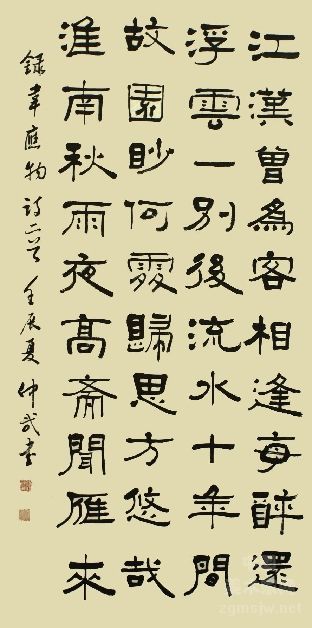 江漢曾爲客相逢每醉還
浮雲一別後流水十年間
故園眇何處歸思方悠哉
淮南秋雨夜高齋聞雁來
録韋應物詩二首 壬辰夏 仲武書
zgmsjw.net